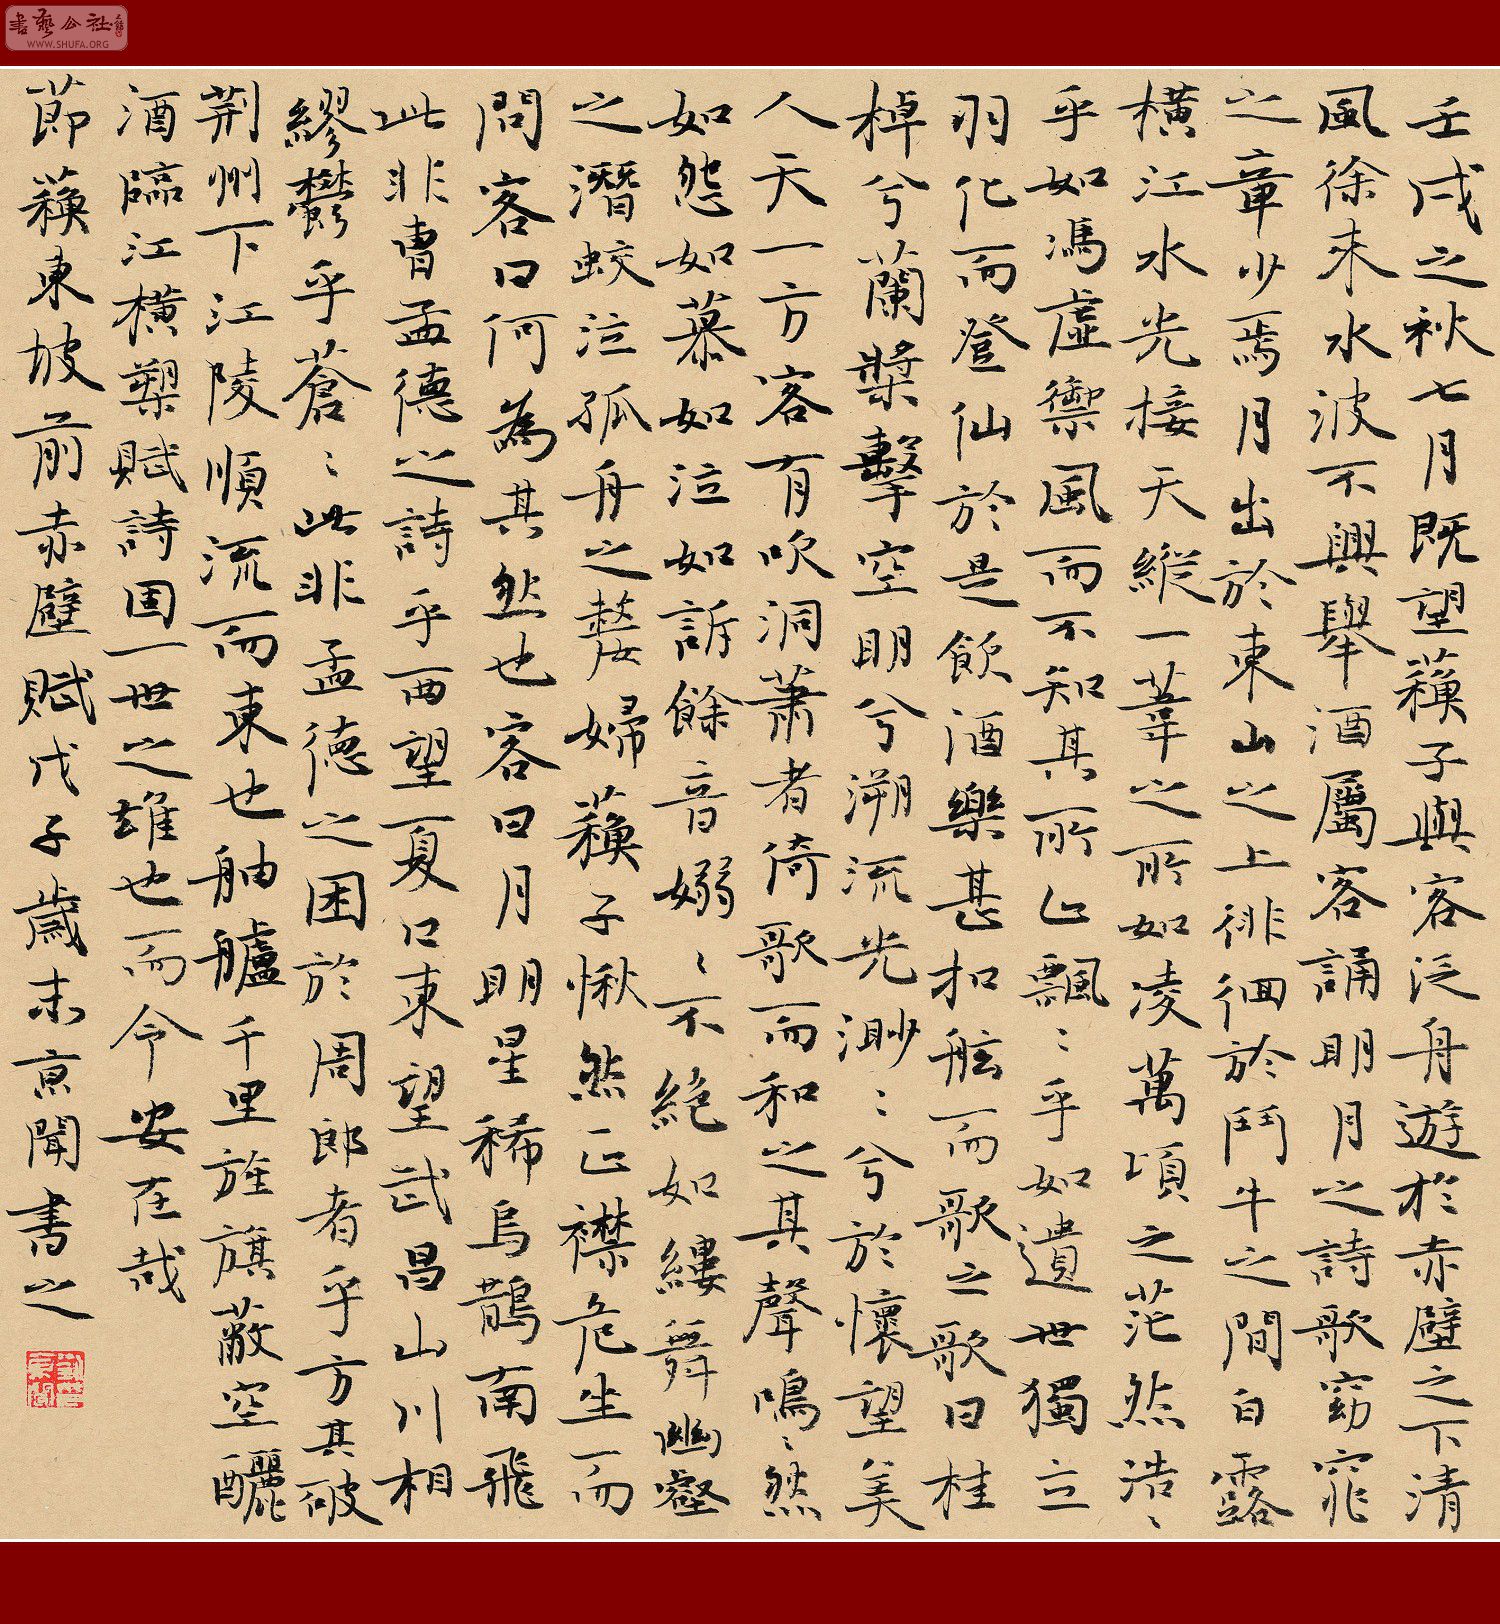 書藝公社
WWW.SHUFA.ORG
壬戌之秋七月既望蘓子與客泛舟遊於赤壁之下清
風徐来水波不興舉酒屬客誦明月之詩歌窈窕
之章少焉月出於東山之上徘徊於鬥牛之間白露
橫江水光接天縱一葦之所如凌萬頃之茫然浩〻
乎如馮虛禦風而不知其所止飄〻乎如遺世獨立
羽化而登仙於是飲酒樂甚扣舷而歌之歌曰桂
棹兮蘭槳擊空明兮兮溯流光渺〻兮於懷望美
人天一方客有吹洞蕭者倚歌而和之其聲鳴〻然
如怨如慕如泣如訴餘音嫋〻不絶如縷舞幽壑
之潛蛟泣孤舟之嫠婦蘓子愀然正襟危坐而
問客曰何為其然也客曰月明星稀烏鵲南飛
此非曹孟德之詩乎西望夏口東望武昌山川相
繆欝乎蒼〻此非孟德之困於周郎者乎方其破
荆州下江陵順流而東也舳艫千里旌旗蔽空釃
酒臨江橫槊賦詩固一世之雄也而今安在哉
節蘓東坡前赤壁賦戊子歲末京聞書之